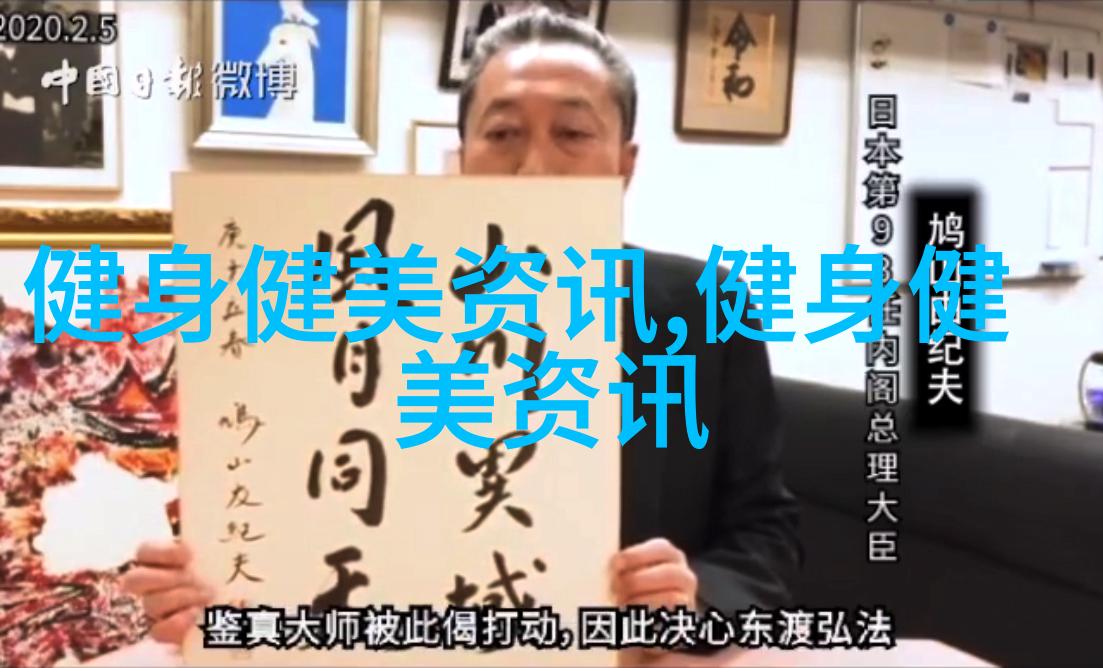 2020.2.5
中國日報 微博
令和
日本第93任内阁总理大臣
鸠山由纪夫
健身健美资讯,健身健
美资讯
山川異域
風月同天
庚子立春 鳩山友紀夫
鉴真大师被此偈打动,因此决心东渡弘法